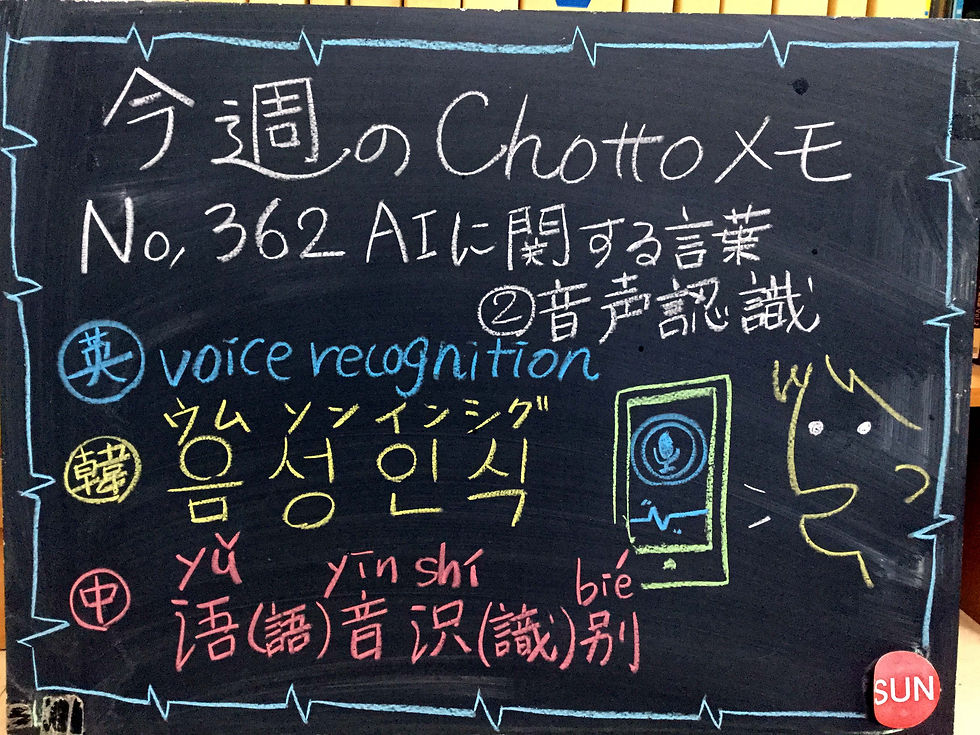 今週のChottoメモ
No, 362 AIに関する言葉
②音声認識
英 voice recognition
ウム ソン イン シグ
韓 음성인식
yǔ yīn shí bié
中 语(語)音识(識)别
SUN